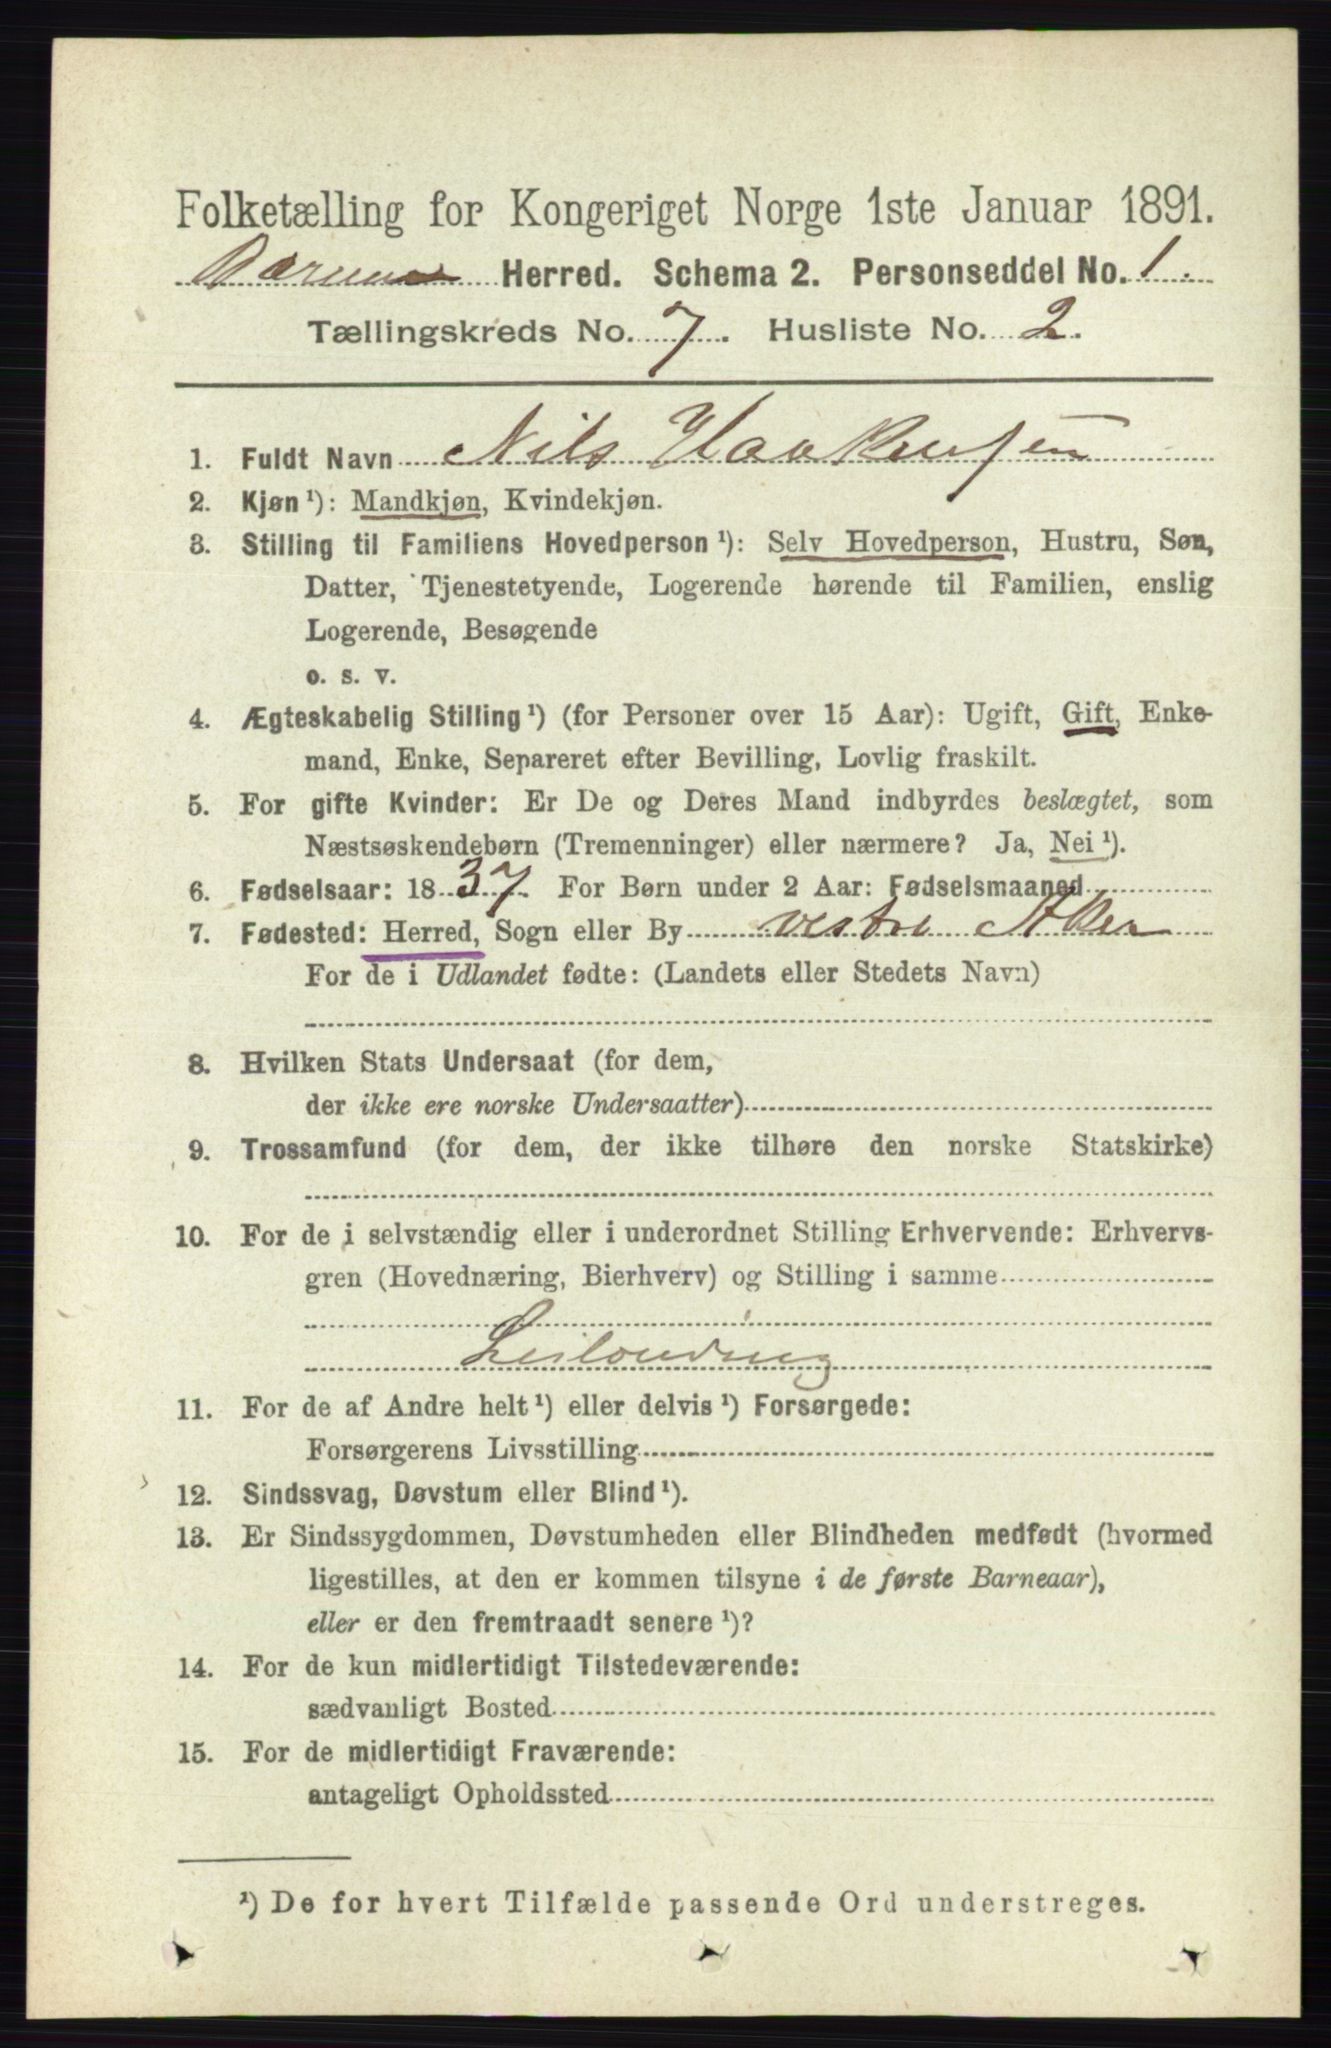 Folketælling for Kongeriget Norge 1ste Januar 1891.
Bærum Herred. Schema 2. Personseddel No. 1.
Tællingskreds No. 7. Husliste No. 2.
1. Fuldt Navn Nils Haakensen
2. Kjøn ¹): Mandkjøn, Kvindekjøn.
3. Stilling til Familiens Hovedperson ¹): Selv Hovedperson, Hustru, Søn,
Datter, Tjenestetyende, Logerende hørende til Familien, enslig
Logerende, Besøgende
o. s. v.
4. Ægteskabelig Stilling ¹) (for Personer over 15 Aar): Ugift, Gift, Enke-
mand, Enke, Separeret efter Bevilling, Lovlig fraskilt.
5. For gifte Kvinder: Er De og Deres Mand indbyrdes beslægtet, som
Næstsøskendebørn (Tremenninger) eller nærmere? Ja, Nei ¹).
6. Fødselsaar: 1837. For Børn under 2 Aar: Fødselsmaaned
7. Fødested: Herred, Sogn eller By vestre Aker
For de i Udlandet fødte: (Landets eller Stedets Navn)
8. Hvilken Stats Undersaat (for dem,
der ikke ere norske Undersaatter)
9. Trossamfund (for dem, der ikke tilhøre den norske Statskirke)
10. For de i selvstændig eller i underordnet Stilling Erhvervende: Erhvervs-
gren (Hovednæring, Bierhverv) og Stilling i samme
Leilending
11. For de af Andre helt ¹) eller delvis ¹) Forsørgede:
Forsørgerens Livsstilling
12. Sindssvag, Døvstum eller Blind ¹).
13. Er Sindssygdommen, Døvstumheden eller Blindheden medfødt (hvormed
ligestilles, at den er kommen tilsyne i de første Barneaar),
eller er den fremtraadt senere ¹)?
14. For de kun midlertidigt Tilstedeværende:
sædvanligt Bosted
15. For de midlertidigt Fraværende:
antageligt Opholdssted
¹) De for hvert Tilfælde passende Ord understreges.